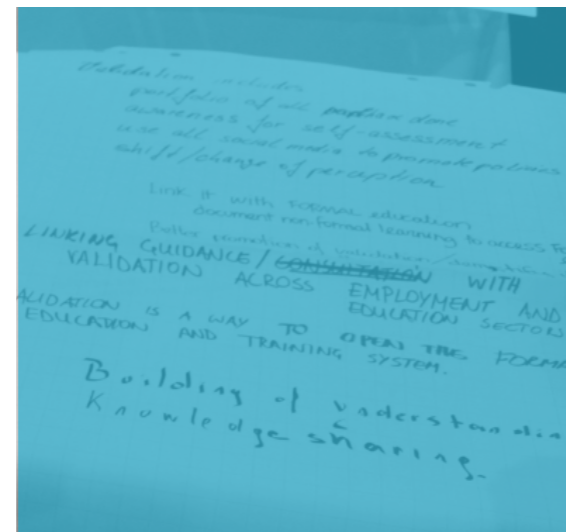 Validation includes
portfolio of all done
awareness for self-assessment
use all social media to promote policies
shift/change of perception
Link it with FORMAL education
document non-formal learning to access
Better promotion of validation/
LINKING GUIDANCE/ CONSULTATION WITH
VALIDATION ACROSS EMPLOYMENT AND
EDUCATION SECTORS
ALIDATION IS A WAY TO OPEN THE FORMA
EDUCATION AND TRAINING SYSTEM.
Building of understandin
Knowledge sharing.